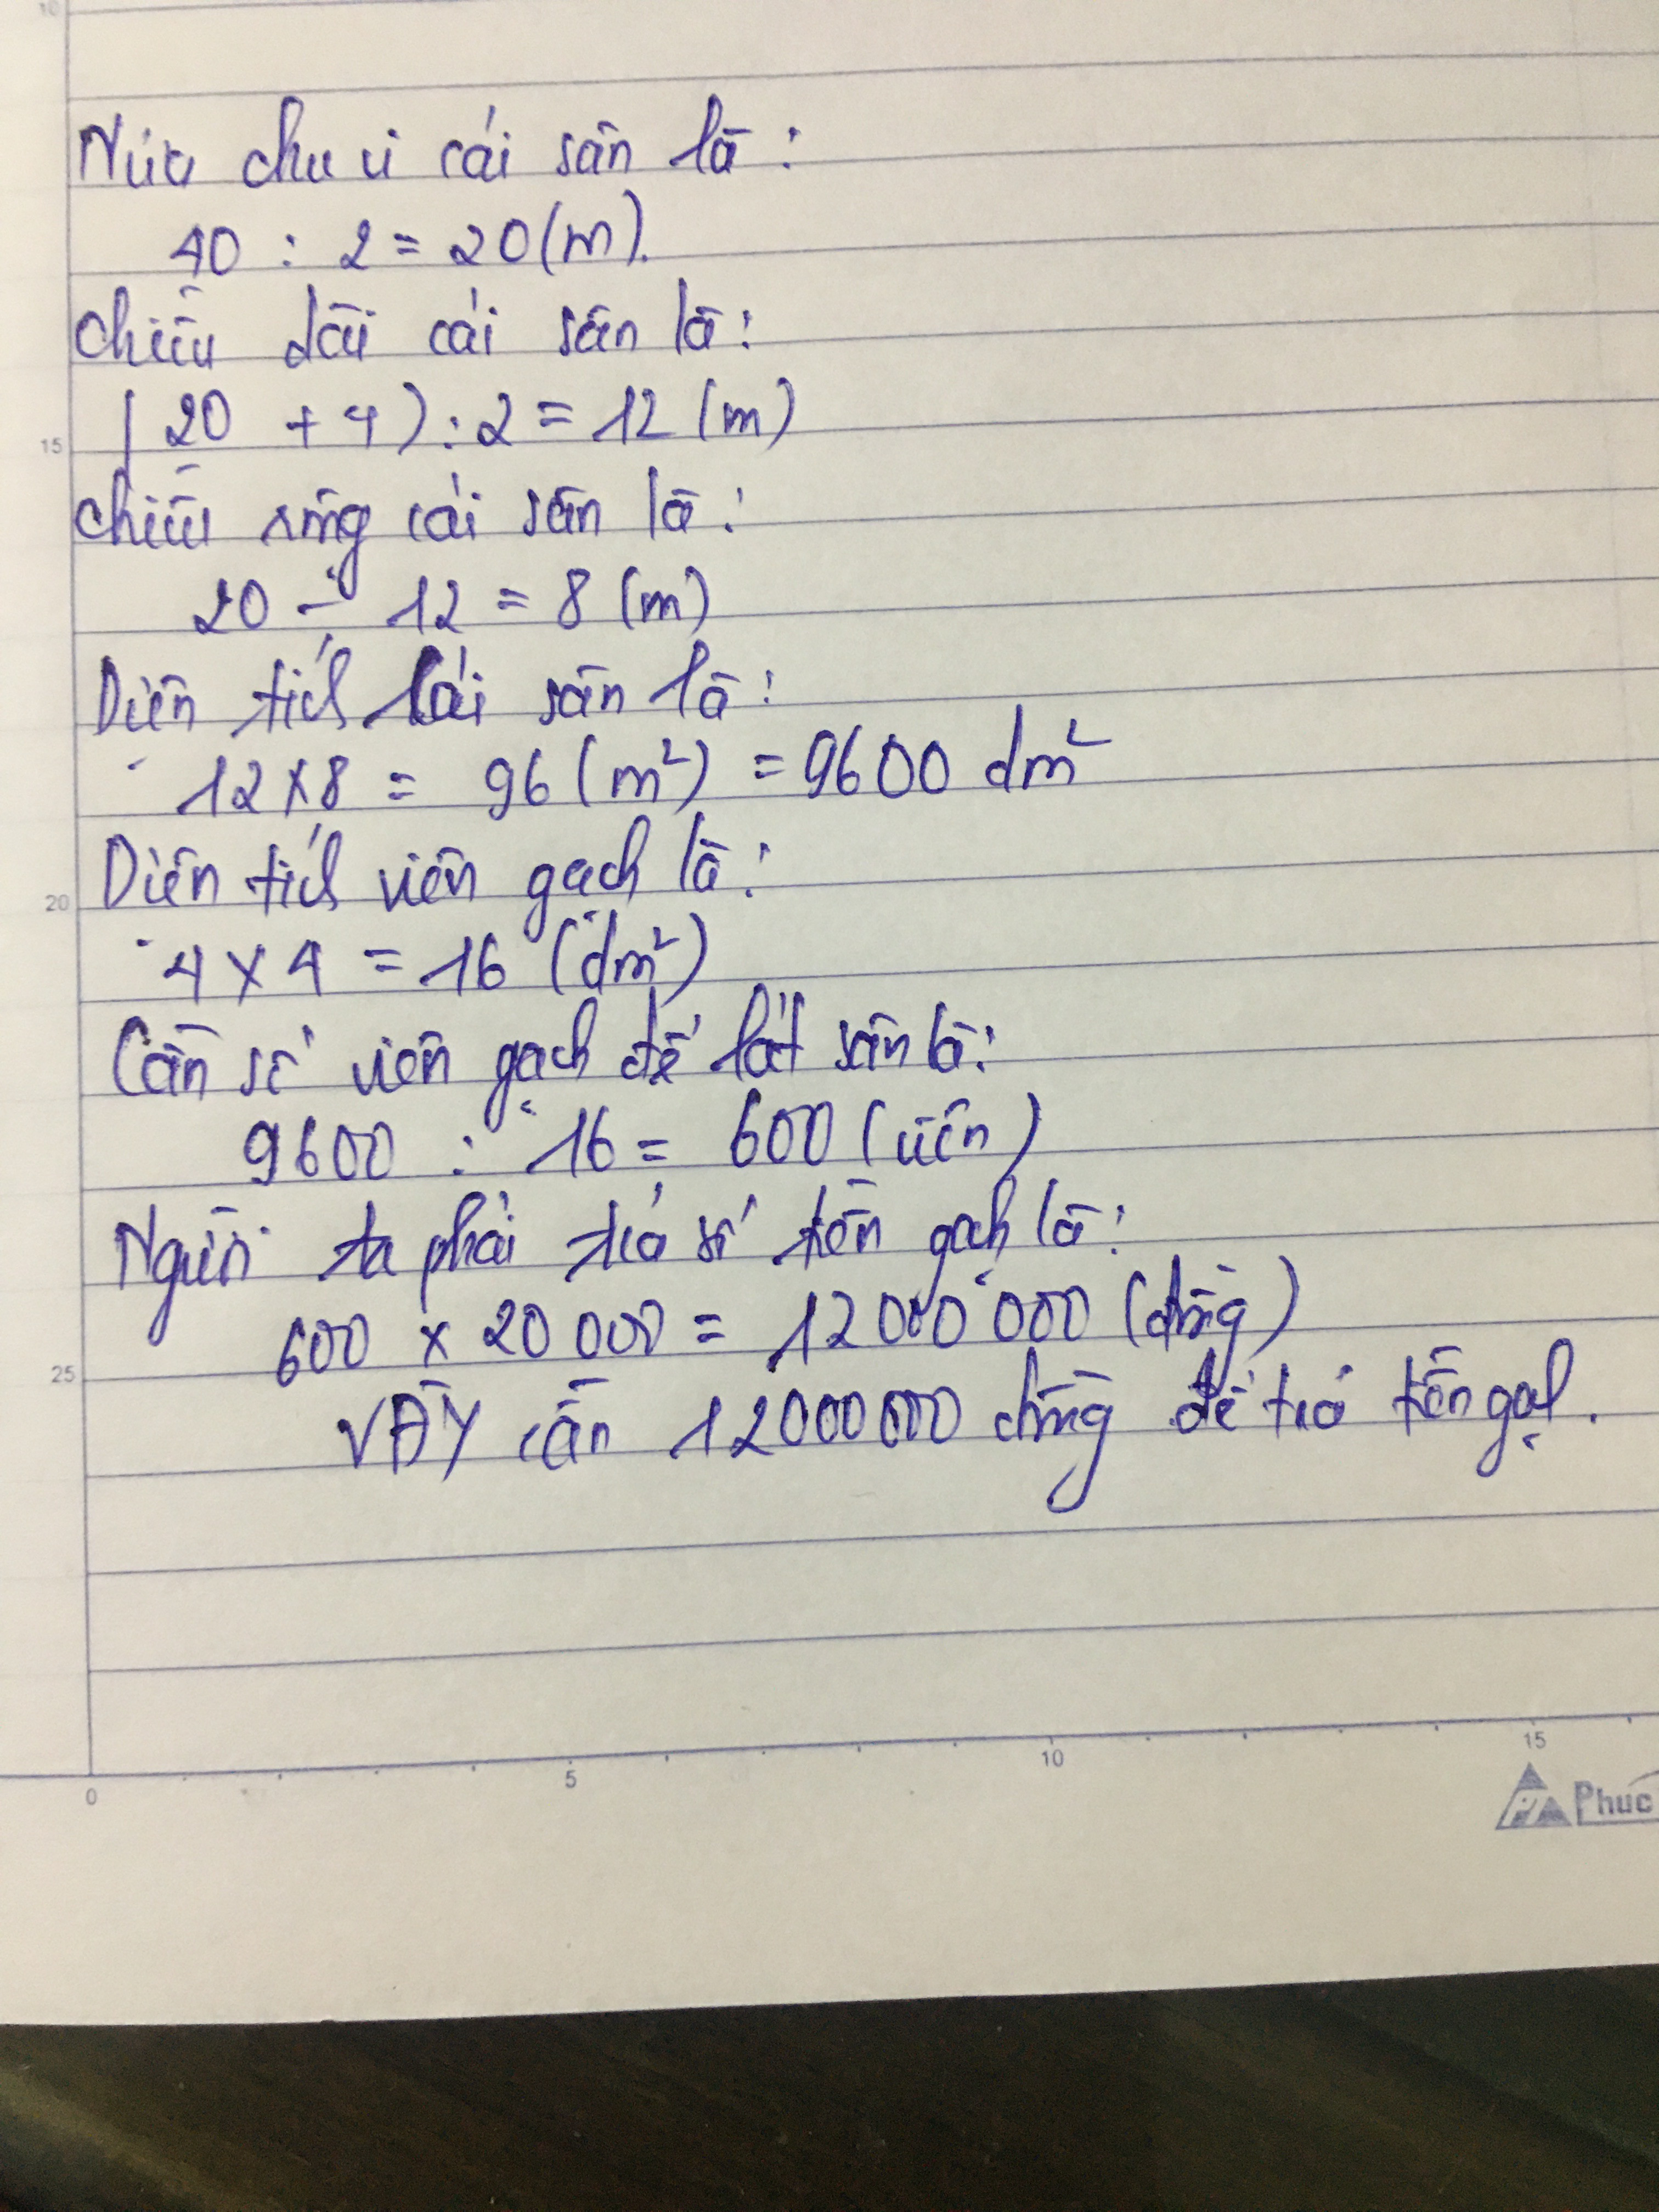 10
Nửa chu vi cái sân là:
40 : 2 = 20 (m).
Chiều dài cái sân là:
(20 + 4) : 2 = 12 (m)
15
Chiều rộng cái sân là:
20 - 12 = 8 (m)
Diện tích cái sân là:
12 x 8 = 96 (m²) = 9600 dm²
Diện tích viên gạch là:
20
4 x 4 = 16 (dm²)
Cần số viên gạch để lát sân là:
9600 : 16 = 600 (viên)
Người ta phải trả số tiền gạch là:
600 x 20 000 = 12 000 000 (đồng)
25
VẬY cần 12000000 đồng để trả tiền gạch.
0 5 10 15
Phuc